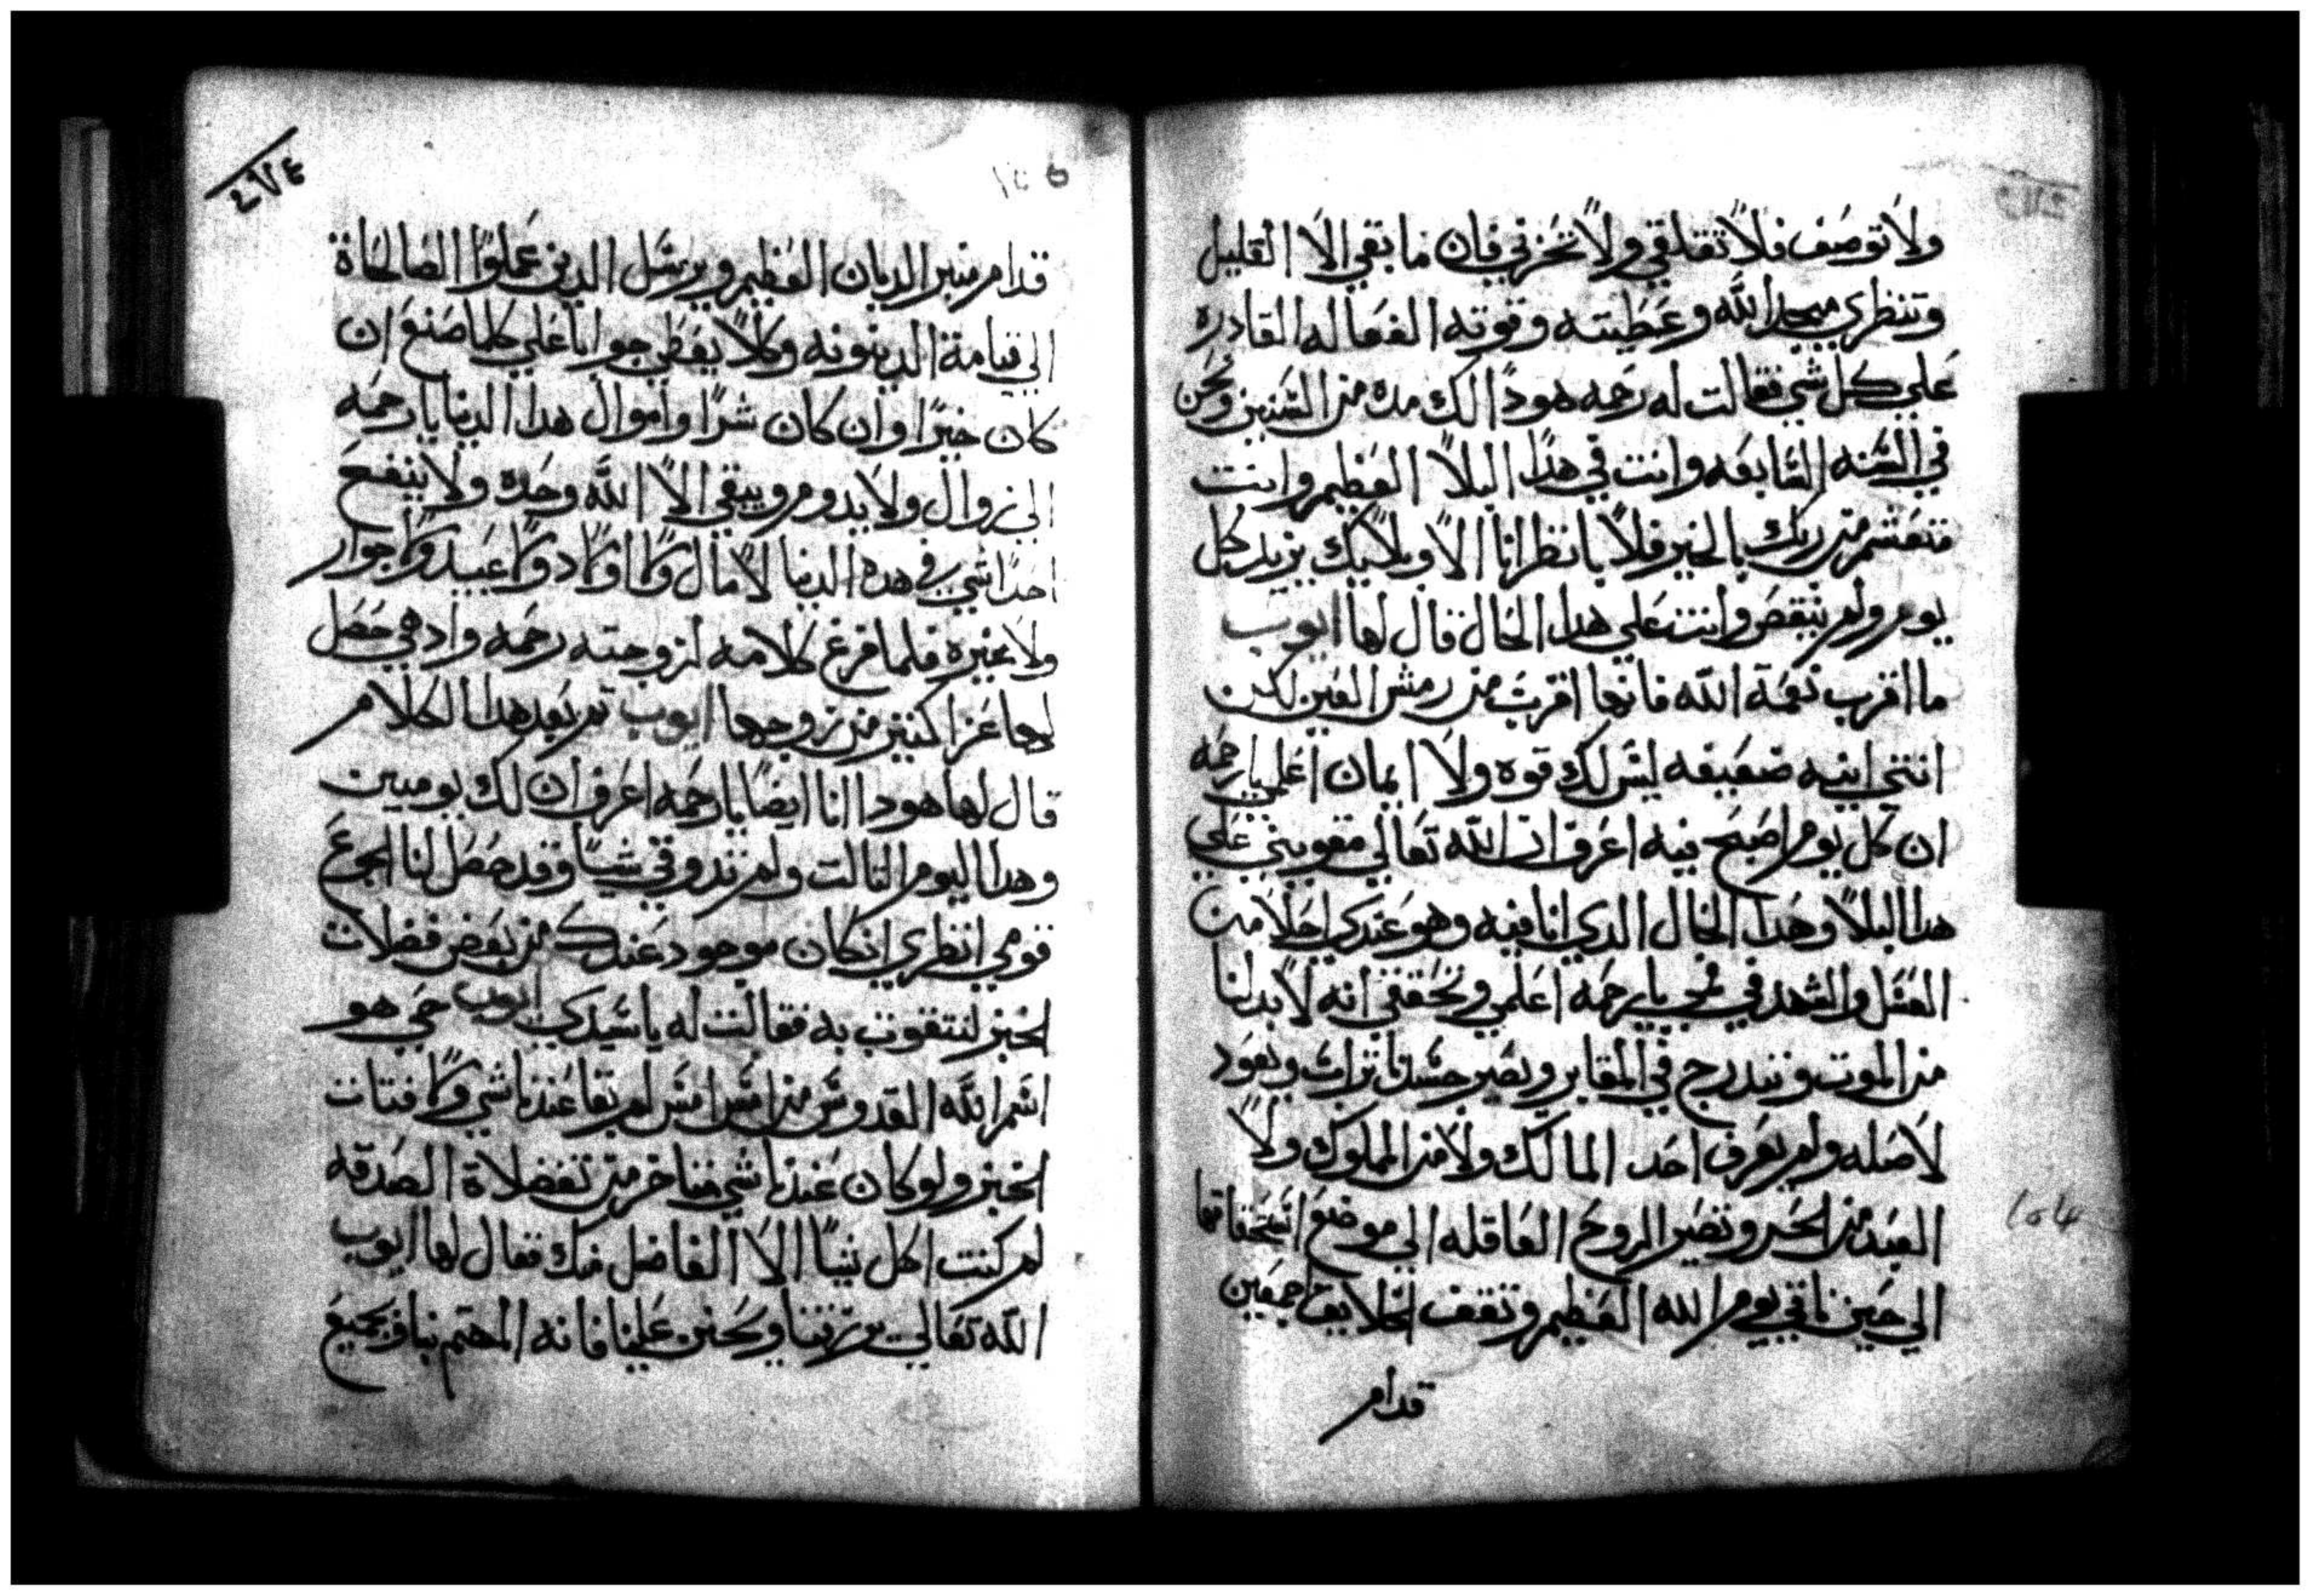 ولا توصف فلا تقلقي ولا تحزني فان ما بقي الا القليل
وتنظري مجد الله وعطيته وقوته الفعاله القادره
علي كل شي فقالت له رحمه هودا لك مده من السنين ونحن
في السنه السابعه وانت في هدا البلا العظيم وانت
متعشم من ربك بالخير فلا بانظر انا الا وبلايك يزيد كل
يوم ولم ينقص وانت علي هدا الحال قال لها ايوب
ما اقرب نعمة الله فانها اقرب من رمش العين لكن
انتي انيه ضعيفه ليس لك قوه ولا ايمان اعلمي يا رحمه
ان كل يوم اصبح فيه اعرف ان الله تعالي مقويني علي
هدا البلا وهدا الحال الدي انا فيه وهو عندي احلا من
العسل والشهد في فمي يا رحمه اعلمي وتحققي انه لا بد لنا
من الموت ونندرج في المقابر ويصير جسدنا تراب ويعود
لاصله ولم يعرف احد المالك ولا من المملوك ولا
العبد من الحر وتصير الروح العاقله الي موضع استحقاقها
الي حين ناتي يوم الله العظيم وتقف الخلايق اجمعين
قدام
٢٧٤
قدام منبر الديان العظيم ويرسل الدين عملوا الصالحاة
الي قيامة الدينونه وكلا يعطي جوابا علي كلما صنع ان
كان خيرا وان كان شرا واموال هدا الدنيا يا رحمه
الي زوال ولا يدوم ويبقي الا الله وحده ولا ينفع
احدا شي في هده الدنيا لا مال ولا اولاد ولا عبيد ولا جوار
ولا غيره فلما فرغ كلامه لزوجته رحمه وادهي حصل
لها عزا كتير من زوجها ايوب تم بعد هدا الكلام
قال لها هودا انا ايضا يا رحمه اعرف ان لك يوميين
وهدا اليوم التالت ولم تدوقي شيا وقد حصل لنا الجوع
قومي انظري ان كان موجود عندك من بعض فضلات
الخبز لنتقوت به فقالت له يا سيدي ايوب حي هو
اسم الله القدوس من امس امس لم بقا عندنا شي ولا فتات
الخبز ولو كان عندنا شي متاخر من تفضلاة الصدقه
لم كنت اكل شيا الا الفاضل منك فقال لها ايوب
الله تعالي يرزقنا ويحنن علينا فانه المهتم بنا وبجميع